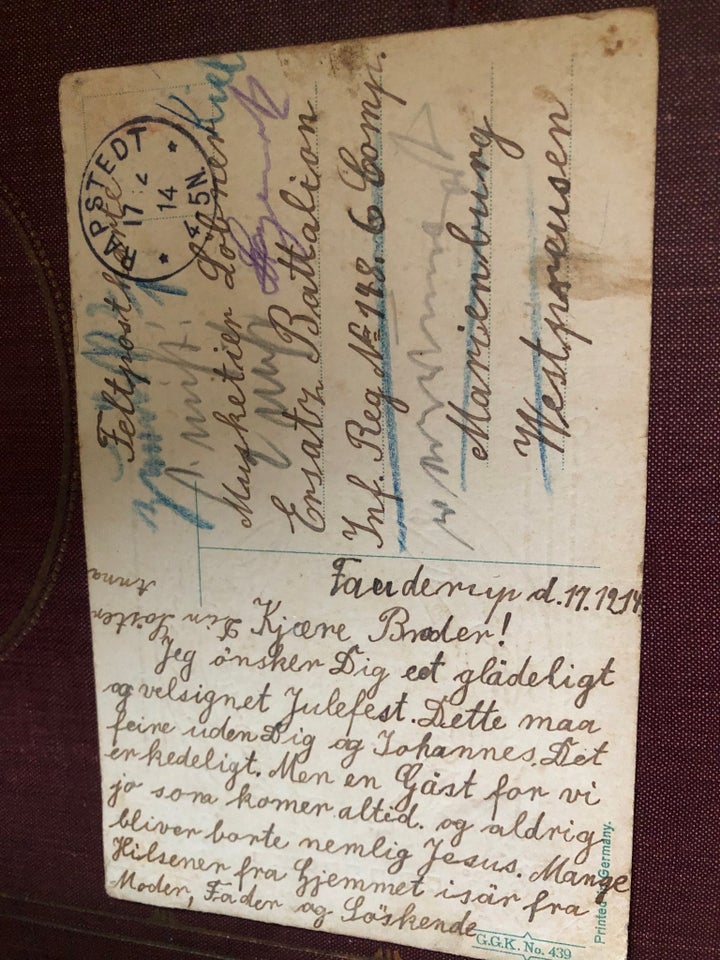 Fauderup d. 17.12 14.
Kjære Broder!
Jeg önsker Dig eet glädeligt
og velsignet Julefest. Dette maa
feire uden Dig og Johannes. Det
er kedeligt. Men en Gäst for vi
jo som komer altid. og aldrig
bliver borte nemlig Jesus. Mange
Hilsener fra Hjemmet isär fra
Moder, Fader og Söskende
Din Söster
Anna
Feltpostkarte
Musketier
Ersatz Battalion
Inf. Reg № 148. 6 Comp.
Marienburg
Westpreusen
RAPSTEDT
17 12
14
4-5N.
Printed in Germany.
G.G.K. No. 439